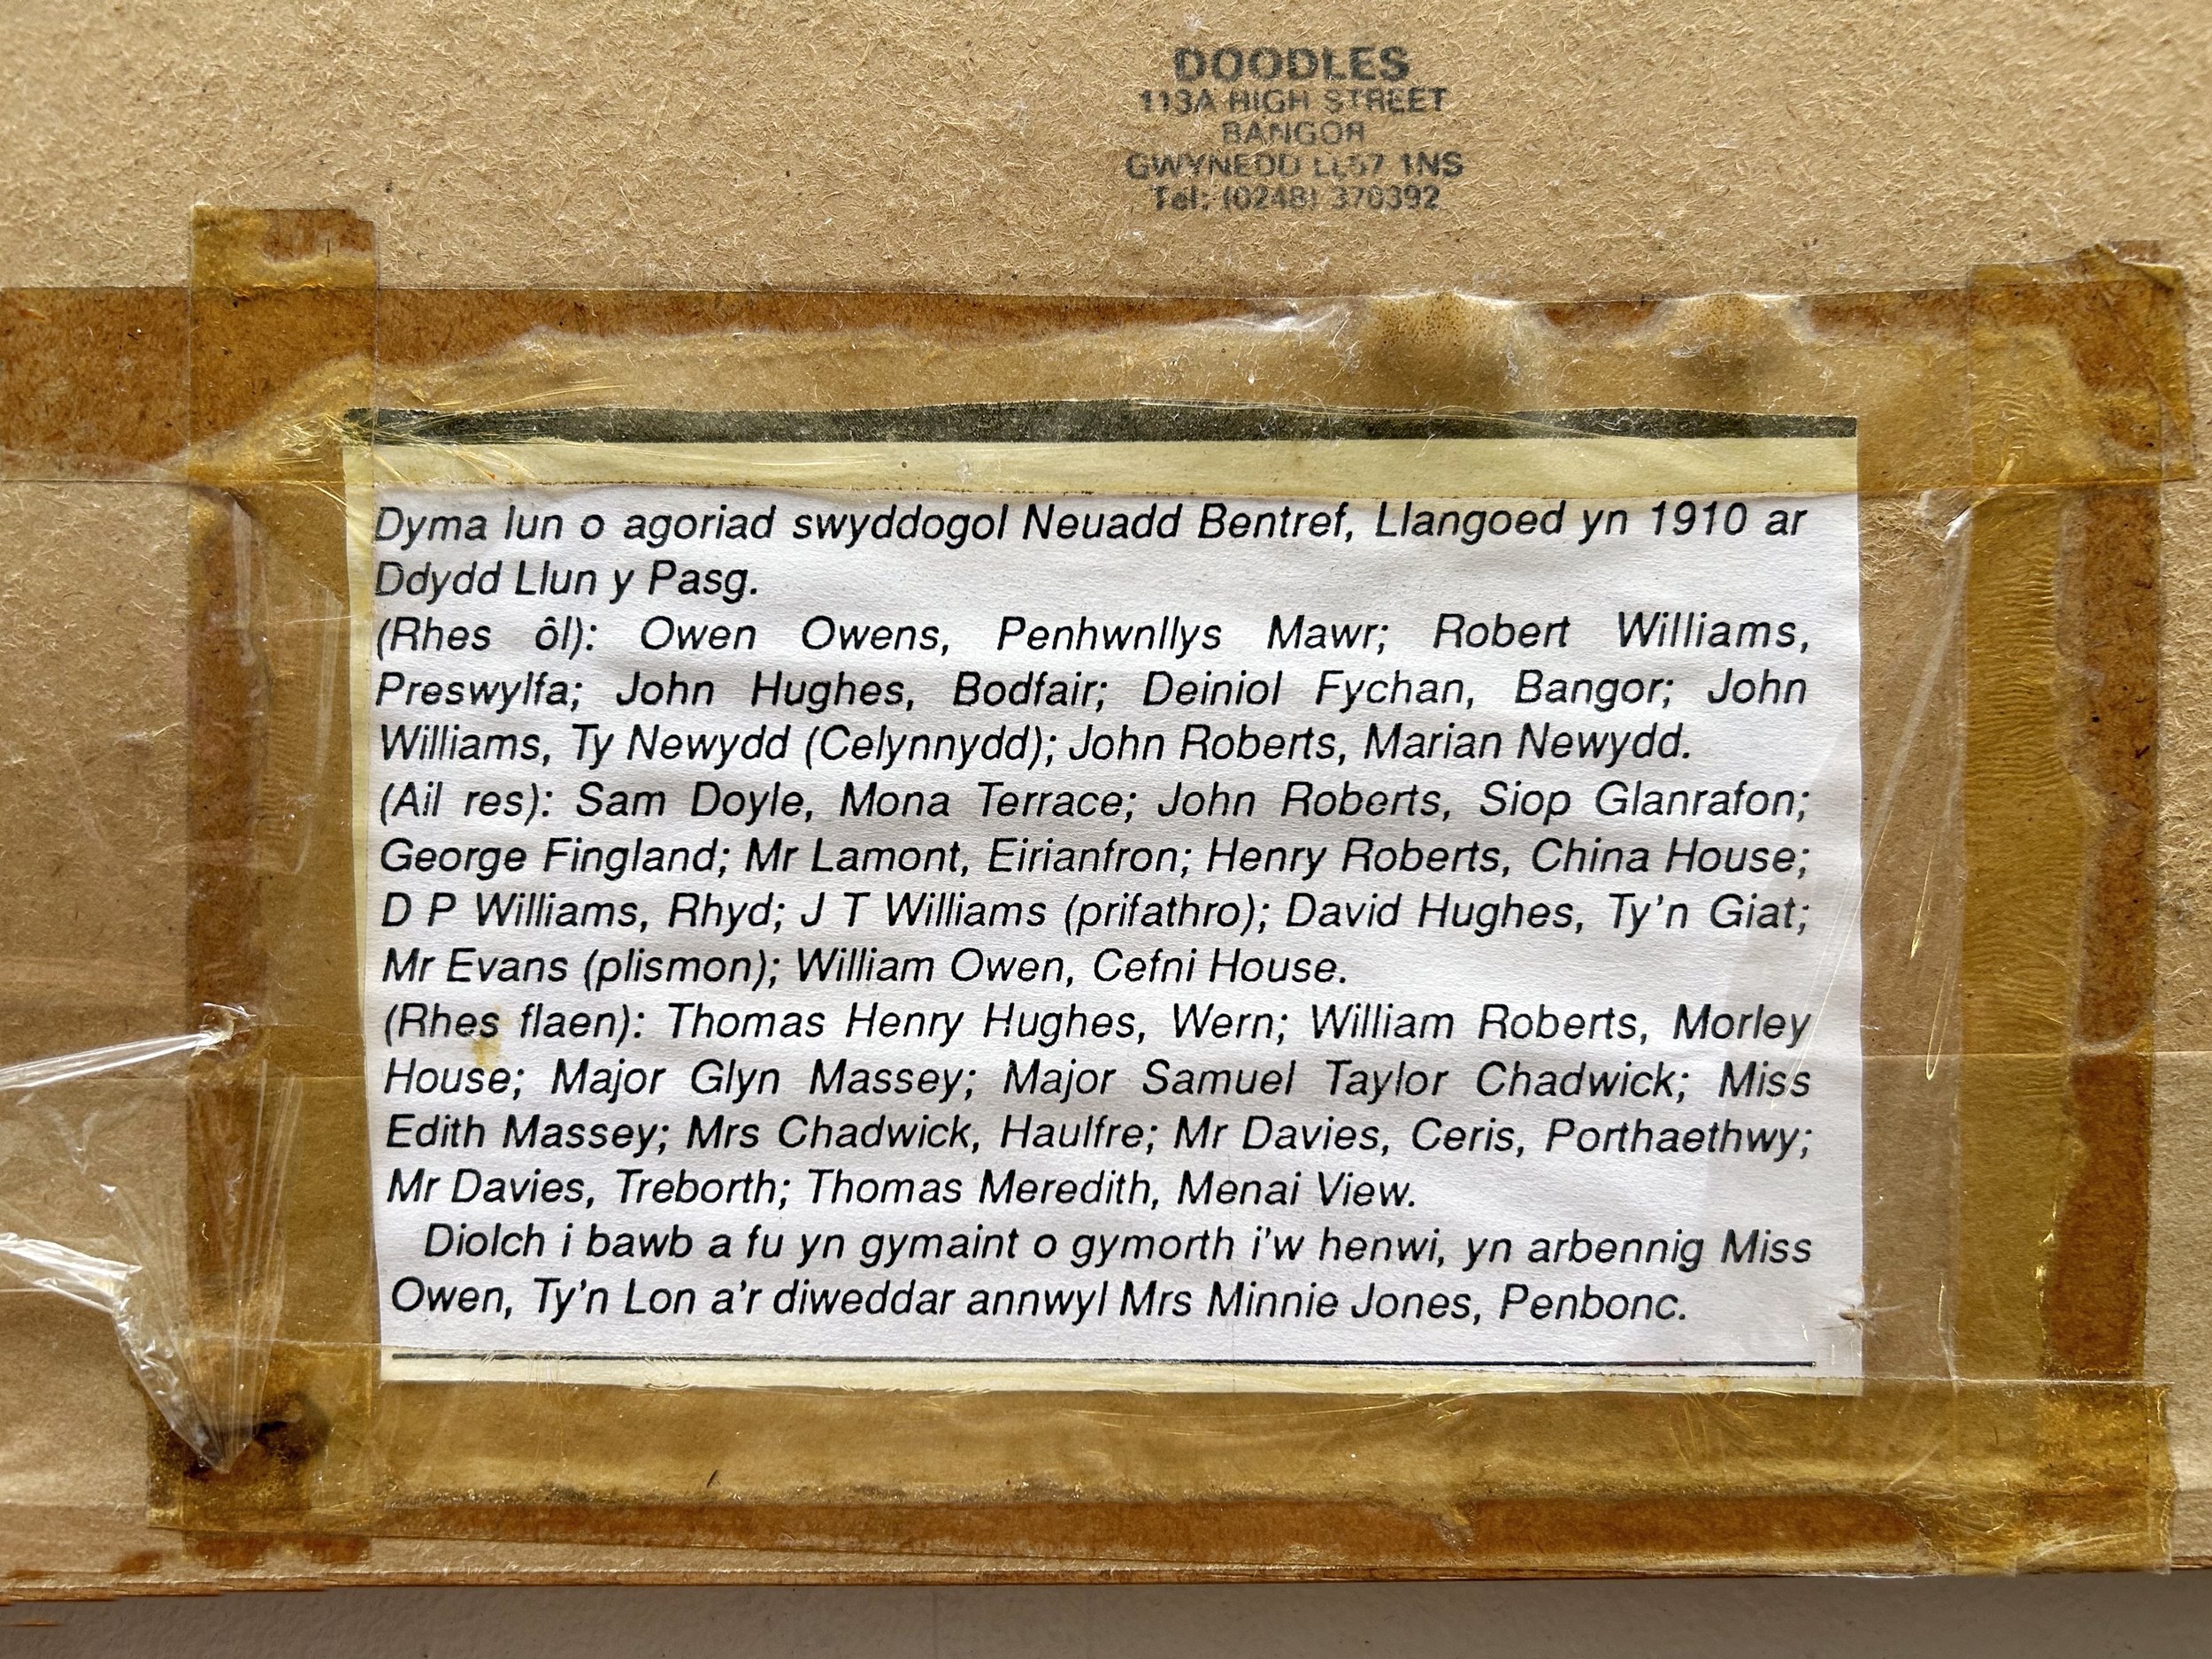 DOODLES
113A HIGH STREET
BANGOR
GWYNEDD LL57 1NS
Tel: (0248) 370392
Dyma lun o agoriad swyddogol Neuadd Bentref, Llangoed yn 1910 ar
Ddydd Llun y Pasg.
(Rhes ôl): Owen Owens, Penhwnllys Mawr; Robert Williams,
Preswylfa; John Hughes, Bodfair; Deiniol Fychan, Bangor; John
Williams, Ty Newydd (Celynnydd); John Roberts, Marian Newydd.
(Ail res): Sam Doyle, Mona Terrace; John Roberts, Siop Glanrafon;
George Fingland; Mr Lamont, Eirianfron; Henry Roberts, China House;
D P Williams, Rhyd; J T Williams (prifathro); David Hughes, Ty'n Giat;
Mr Evans (plismon); William Owen, Cefni House.
(Rhes flaen): Thomas Henry Hughes, Wern; William Roberts, Morley
House; Major Glyn Massey; Major Samuel Taylor Chadwick; Miss
Edith Massey; Mrs Chadwick, Haulfre; Mr Davies, Ceris, Porthaethwy;
Mr Davies, Treborth; Thomas Meredith, Menai View.
Diolch i bawb a fu yn gymaint o gymorth i'w henwi, yn arbennig Miss
Owen, Ty'n Lon a'r diweddar annwyl Mrs Minnie Jones, Penbonc.